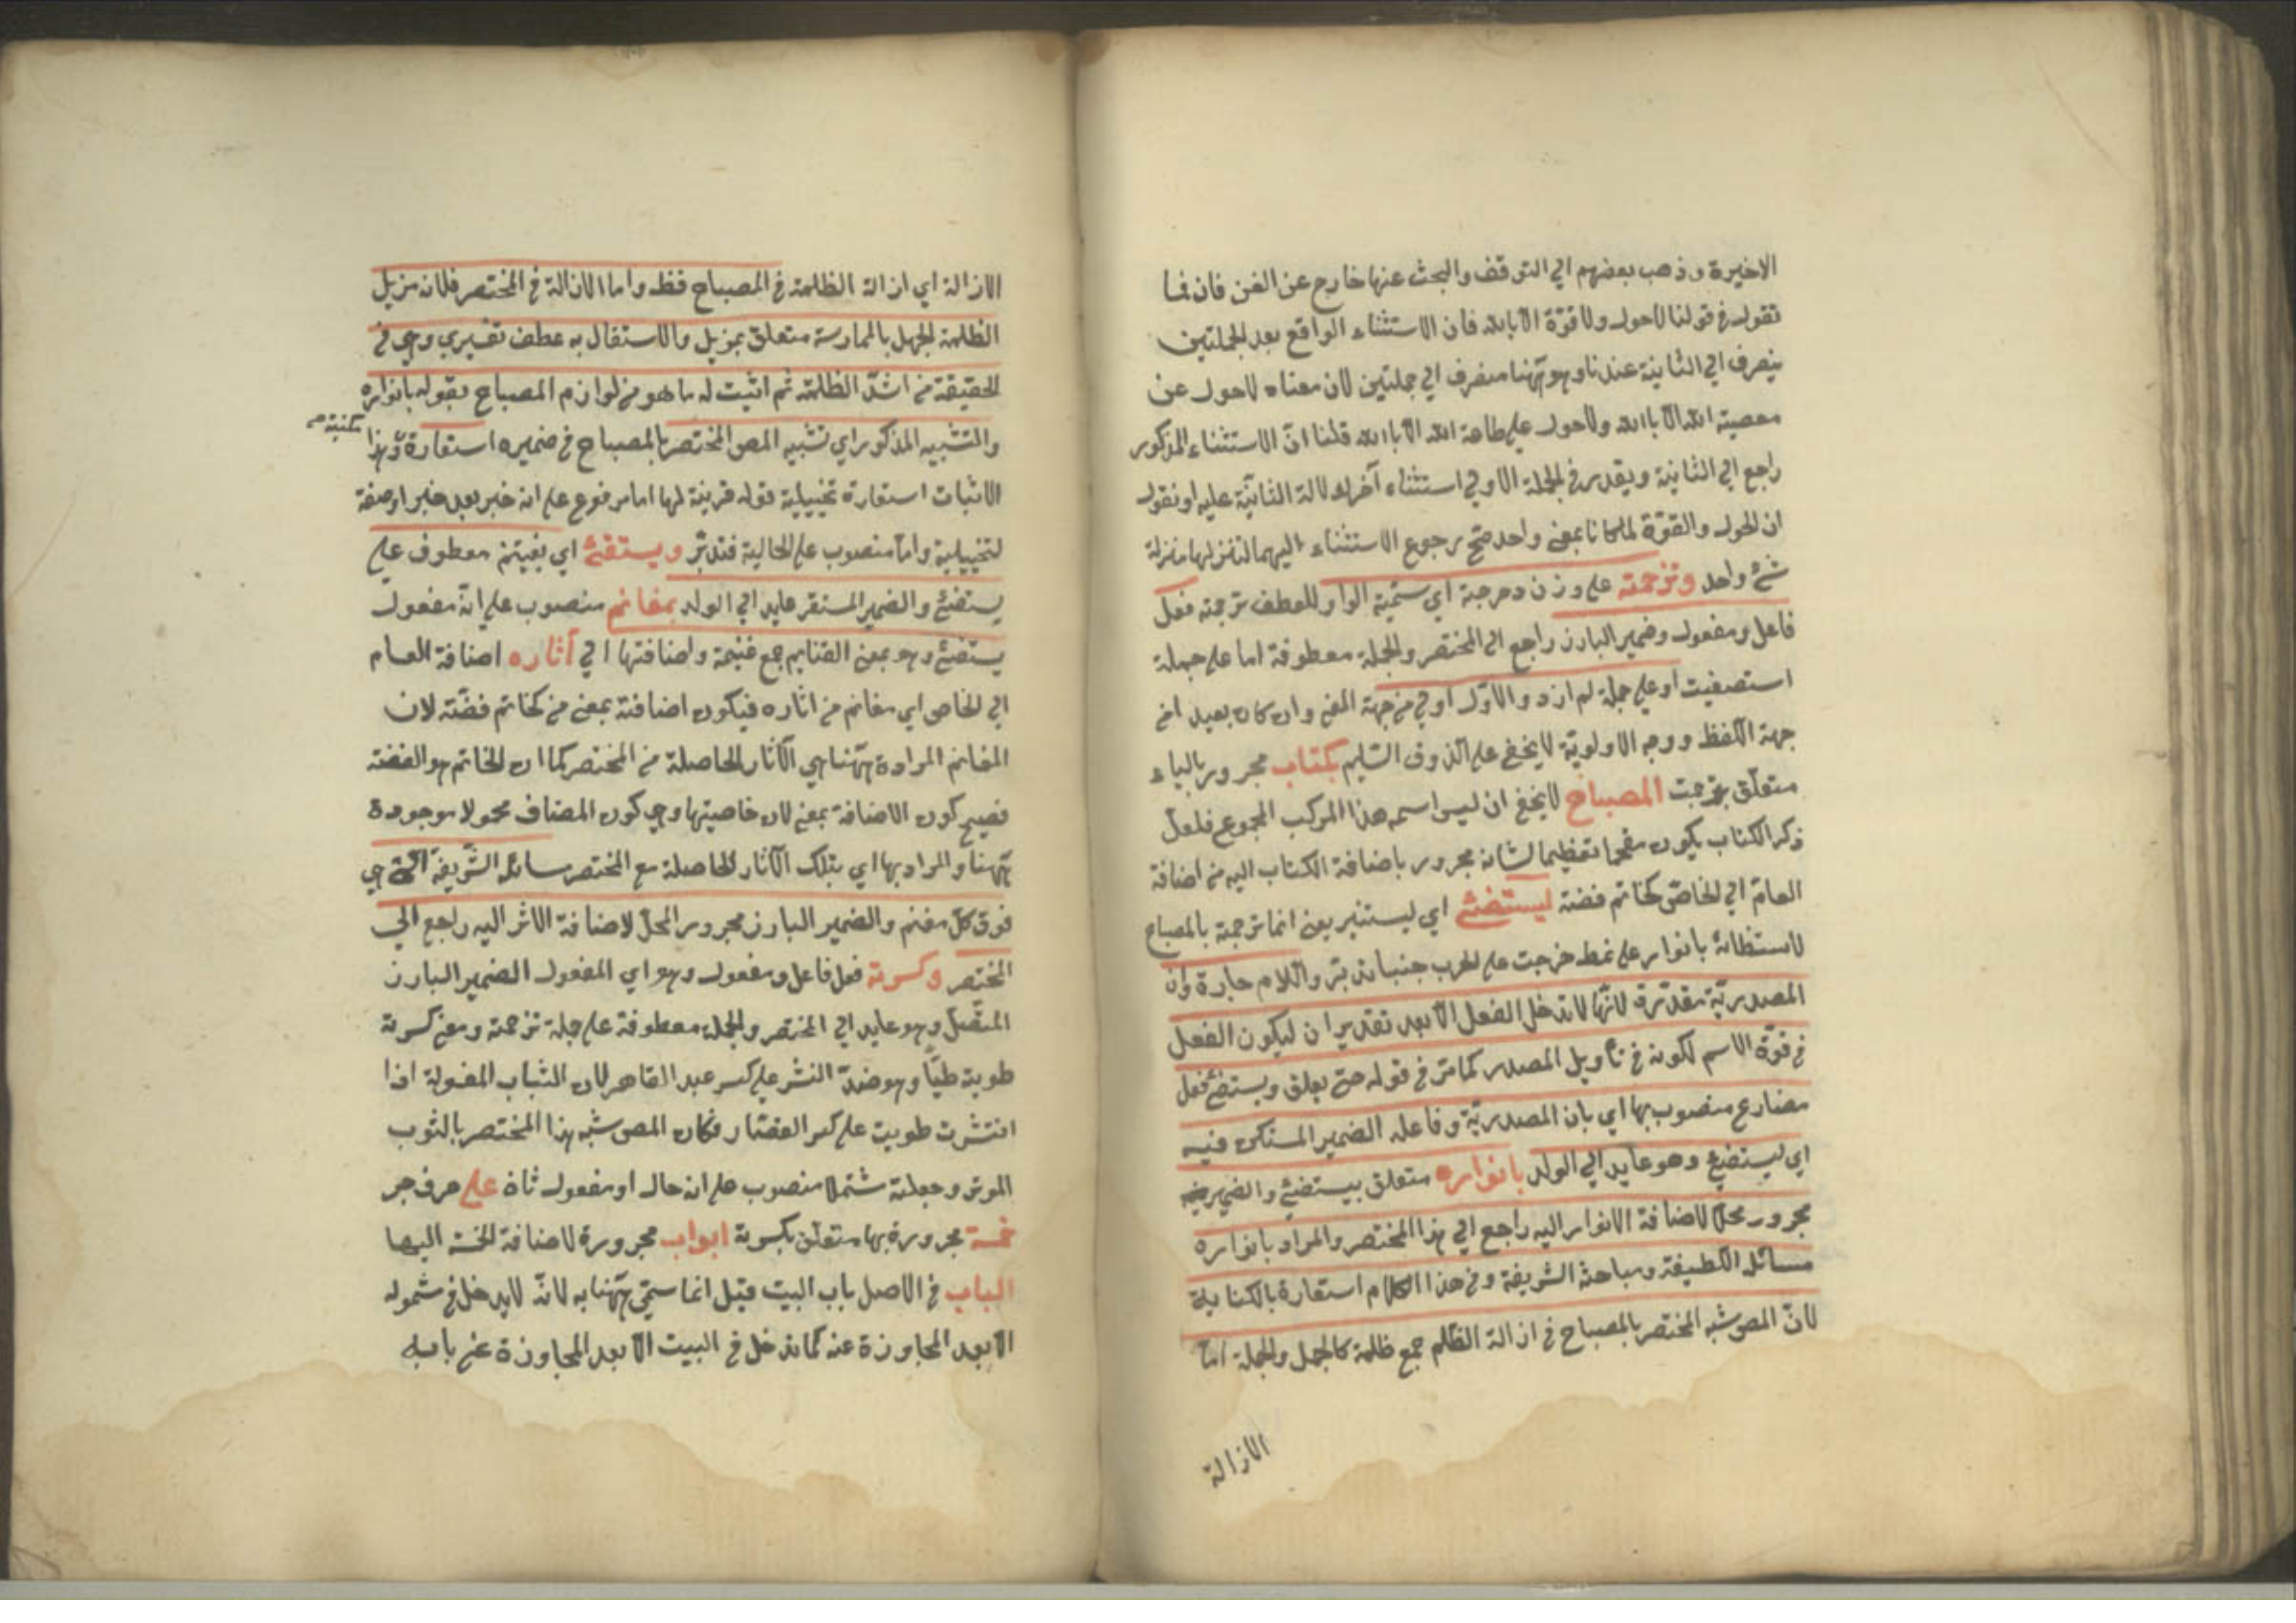 الاخيرة وذهب بعضهم الي التوقف والبحث عنها خارج عن الفن فان فما
تقول في قولنا لاحول ولا قوّة الا بالله فان الاستثناء الواقع بعد الجملتين
ينصرف الي الثانية عندنا وهو ههنا منصرف الي جملتين لان معناه لاحول عن
معصية الله الا باالله ولاحول علي طاعة الله الا باالله قلنا انّ الاستثناء المذكور
راجع الي الثانية ويقدر في الجملة الاولي استثناء آخر لدلالة الثانيّة عليه او نقول
ان الحول والقوّة لما كانا بمعني واحد صحّ رجوع الاستثناء اليهما لتنزلها منزلة
شئ واحد وترجمته علي وزن دحرجة اي سمّيته الواو للعطف ترجمته فعل
فاعل ومفعول وضمير البارز راجع الي المختصر والجملة معطوفة اما علي جملة
استصفيت او علي جملة لم ازد والاوّل اولي من جهة المعني وان كان بعيد امن
جهة اللفظ ووجه الاولويّة لا يخفي علي الذوق السّليم بكتاب مجرور بالباء
متعلّق بترجمت المصباح لا يخفي ان ليس اسم هذا المركب المجموع فلعلّ
ذكر الكتاب يكون مقحما تعظيما لشانه مجرور باضافة الكتاب اليه من اضافة
العامّ الي الخاصّ كخاتم فضة ليستضئ اي ليستنير يعني انما ترجمة بالمصباح
لاستظائة بانوار علي نمط خرجت علي الحرب جنبا تدبّر واللام جارة وان
المصدريّة مقدّرة لانّها لا تدخل الفعل الا بعد تقدير ان ليكون الفعل
في قوّة الاسم لكونه في تأويل المصدر كما مرّ في قوله حتي يعلق ويستضئ فعل
مضارع منصوب بها اي بان المصدريّة وفاعله الضمير المستكن فيه
اي ليستضئ وهو عايد الي الولد بانواره متعلق بيستضئ والضمير فيه
مجرور محلّا لاضافة الانوار اليه راجع الي هذا المختصر والمراد بانواره
مسائله اللطيفة ومباحثه الشريفة وفي هذا الكلام استعارة بالكناية
لانّ المص شبه المختصر بالمصباح في ازالة الظلم جمع ظلمة كالجمل والجملة امّا
الازالة
الازالة اي ازالة الظلمة في المصباح فظ واما الازالة في المختصر فلانه مزيل
الظلمة الجهل بالممارسة متعلق بمزيل والاستقال به عطف تفسيري وهي في
الحقيقة من اشدّ الظلمة ثم اثبت له ما هو من لوازم المصباح بقوله بانواره
والتشبيه المذكور اي تشبيه المص المختصر بالمصباح في ضميره استعارة وهذا
مكنية صح
الاثبات استعارة تخييلية قوله قرينة لها اما مرفوع علي انه خبر بعد خبر او صفة
لتخييلية وامّا منصوب علي الحالية فتدبّر ويستقئ اي يغيتنم معطوف علي
يستضئ والضمير المستتر عايد الي الولد بمغانم منصوب علي انه مفعول
يستضئ وهو بمعني الغنايم جمع غنيمة واضافتها الي آثاره اضافة العام
الي الخاص اي مغانم من اثاره فيكون اضافته بمعني من كخاتم فضّة لان
المغانم المرادة ههنا هي الآثار الحاصلة من المختصر كما ان الخاتم هو الفضة
فصح كون الاضافة بمعني لان خاصيتها وهي كون المضاف محمولا موجودة
ههنا والمراد بها اي بتلك الآثار الحاصلة مع المختصر مسائله الشّريفة التي هي
فوق كلّ مغنم والضمير البارز مجرور المحلّ لاضافة الاثر اليه راجع الي
المختصر وكسرته فعل فاعل ومفعول وهو اي المفعول الضمير البارز
المتّصل وهو عايد الي المختصر والجملة معطوفة علي جملة ترجمته ومعني كسرته
طويته طيّا وهو ضدّ النشر علي كسر عبد القاهر لان الثياب المغسولة اذا
انتشرت طويت علي كسر القصّار فكان المص شبه هذا المختصر بالثوب
وجعلته مشتملا منصوب علي انه حال او مفعول ثان علي حرف جر
خمسة مجرورة بها متعلق بكسرته ابواب مجرورة لاضافة الخمسة اليها
الباب في الاصل باب البيت قيل انما سمّي ههنا به لانّه لا يدخل في شموله
الا بعد المجاوزة عنه كما تدخل في البيت الا بعد المجاوزة عن بابه